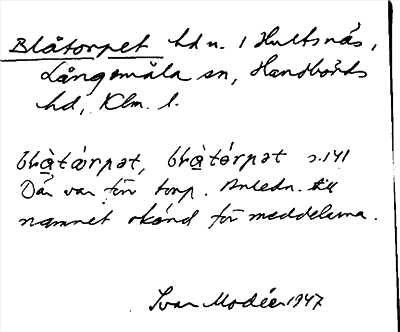 Blåtorpet hd u. 1 Hultsnäs,
Långemåla sn, Handbörds
hd, Klm. l.
blàtàrpət, blàtórpət s. 141
Där var förr torp. Anledn. till
namnet okänd för meddelarna.
Ivar Modéer 1947